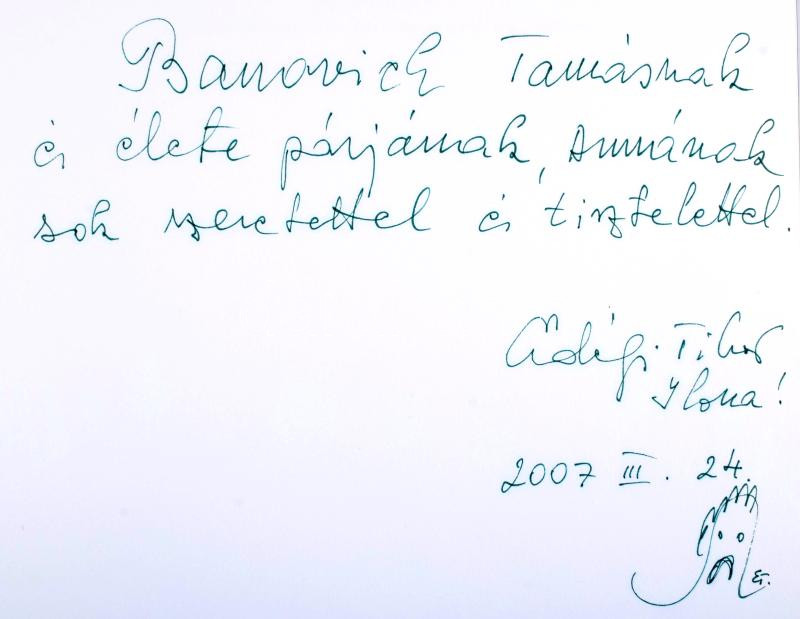 Banovich Tamásnak
és élete párjának, Annának
sok szeretettel és tisztelettel.
Tibor
Ilona!
2007 III. 24.